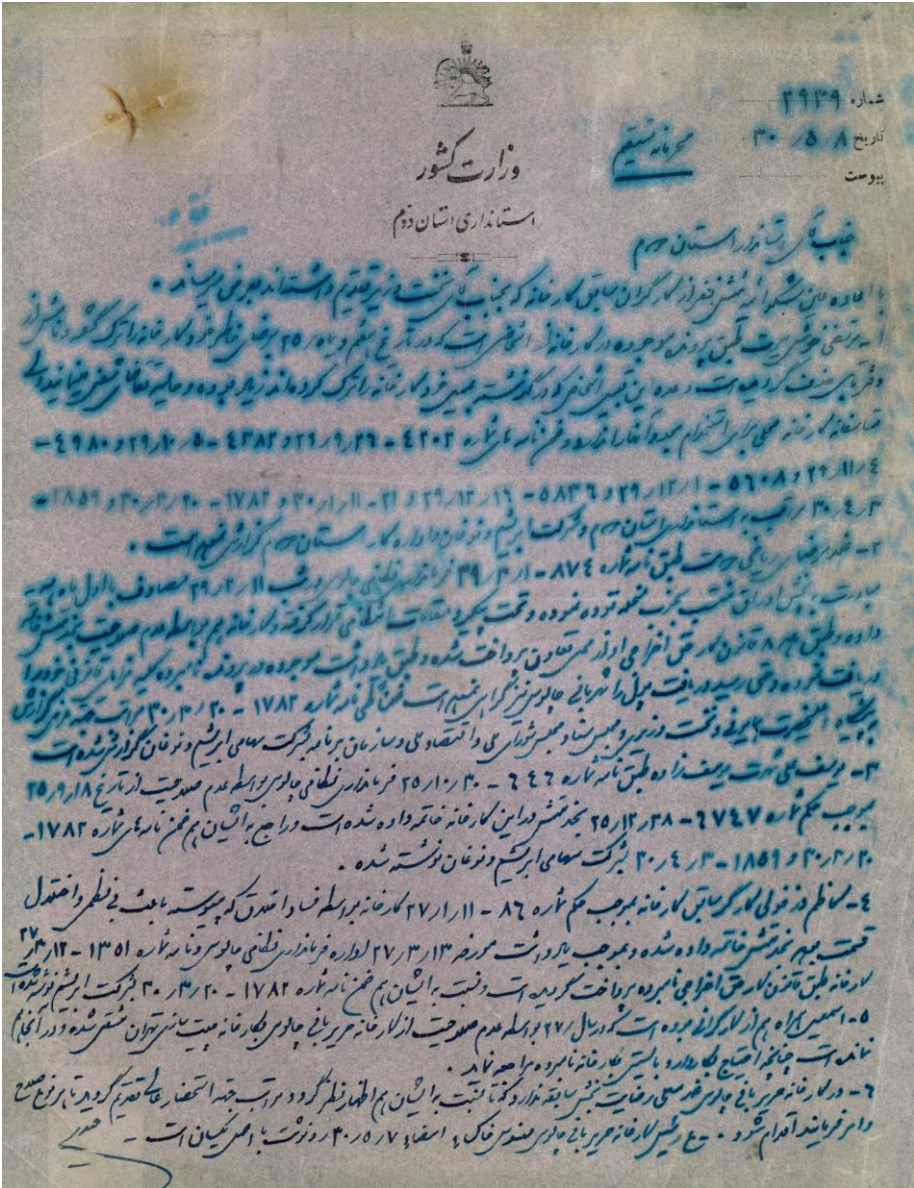 شماره ۲۹۳۹
تاریخ ۳۰/۵/۸
پیوست
محرمانه مستقیم
وزارت کشور
استانداری استان دوم
جناب آقای استاندار استان دوم
با اعاده عین شکوائیه شش نفر از کارگران سابق کارخانه که بجناب آقای نخست وزیر تقدیم داشته‌اند بعرض میرساند.
۱- طبق پرونده موجوده در کارخانه از اشخاصی است که در تاریخ ششم دیماه ۲۵ کارخانه را ترک
و عده این قبیل اشخاص که در گذشته کارخانه را ترک کرده‌اند زیاد بوده و حالیه تقاضای شغل مینمایند ولی
متاسفانه کارخانه محلی برای استخدام مجدد آنها ندارد و ضمن نامه‌های شماره ۴۲۰۲ - ۲۹/۹/۲۶ و ۴۳۸۲ - ۲۹/۱۰/۵ و ۴۹۸۰ -
۲۹/۱۱/۴ و ۵۶۰۸ - ۲۹/۱۲/۱ و ۵۸۳۶ - ۲۹/۱۲/۱۶ و ۲۱ - ۳۰/۱/۱۱ و ۱۷۸۲ - ۳۰/۳/۲۰ و ۱۸۵۹ -
۳۰/۴/۳ مراتب به استانداری استان دوم و شرکت ابریشم و نوغان و اداره کار استان دوم گزارش شده است.
۲- طبق نامه شماره ۸۷۴ - فرمانداری نظامی چالوس در شب ۲۹/۲/۱۱ مصادف با اول ماه مه
مبادرت به پخش اوراق منتسب بحزب منحله توده نموده و تحت پیگرد مقامات انتظامی قرار گرفته و کارخانه هم بواسطه عدم صلاحیت بخدمتش خاتمه
داده و طبق قانون کار حق اخراجی او از صندوق تعاون پرداخت شده و طبق یادداشت موجوده در پرونده نامبرده کلیه مزایای قانونی خود را
دریافت نموده و حتی رسید دریافت پول را شهربانی چالوس نیز گواهی نموده است ضمن نامه شماره ۱۷۸۲ - ۳۰/۳/۲۰ مراتب جهت عرض گزارش
به پیشگاه اعلیحضرت همایونی و نخست وزیری و مجلس سنا و مجلس شورای ملی و اقتصاد ملی و سازمان برنامه بشرکت سهامی ابریشم و نوغان گزارش شده است
۳- یوسفعلی شهرت یوسف زاده طبق نامه شماره ۶۴۶ - ۲۵/۱۰/۳۰ فرمانداری نظامی چالوس بواسطه عدم صلاحیت از تاریخ ۲۵/۹/۱۸
بموجب حکم شماره ۶۷۴۷ - ۲۵/۱۲/۲۸ بخدمتش در این کارخانه خاتمه داده شده است و راجع به ایشان هم ضمن نامه‌های شماره ۱۷۸۲ -
۳۰/۳/۲۰ و ۱۸۵۹ - ۳۰/۴/۳ بشرکت سهامی ابریشم و نوغان نوشته شده.
۴- کاظم دزفولی کارگر سابق کارخانه بموجب حکم شماره ۸۶ - ۲۷/۱/۱۱ کارخانه بواسطه فساد اخلاق که پیوسته باعث بی‌نظمی و اختلال
قسمت بوده بخدمتش خاتمه داده شده و بموجب یادداشت مورخه ۲۷/۳/۱۳ اداره فرمانداری نظامی چالوس و نامه شماره ۱۳۵۱ - ۲۷/۳/۱۲
کارخانه طبق قانون کار حق اخراجی نامبرده پرداخت گردیده است و نسبت به ایشان هم ضمن نامه شماره ۱۷۸۲ - ۳۰/۳/۲۰ بشرکت ابریشم نوشته شده است
۵- اسمعیل همراه هم از کارگرانی بوده است که در سال ۲۷ بواسطه عدم صلاحیت از کارخانه حریربافی چالوس بکارخانه چیت سازی تهران منتقل شده و در آنجا هم
نمانده است چنانچه احتیاج بکار دارد بایستی بکارخانه نامبرده مراجعه نماید.
۶- در کارخانه حریربافی چالوس سابقه ندارد که تا نسبت به ایشان هم اظهار نظر گردد مراتب جهت استحضار عالی تقدیم گردید تا بهر نوع صلاح
و امر فرمایند اقدام شود. - ع رئیس کارخانه حریربافی چالوس مهندس خاک امضاء ۳۰/۵/۷ رونوشت با اصل یکسان است -